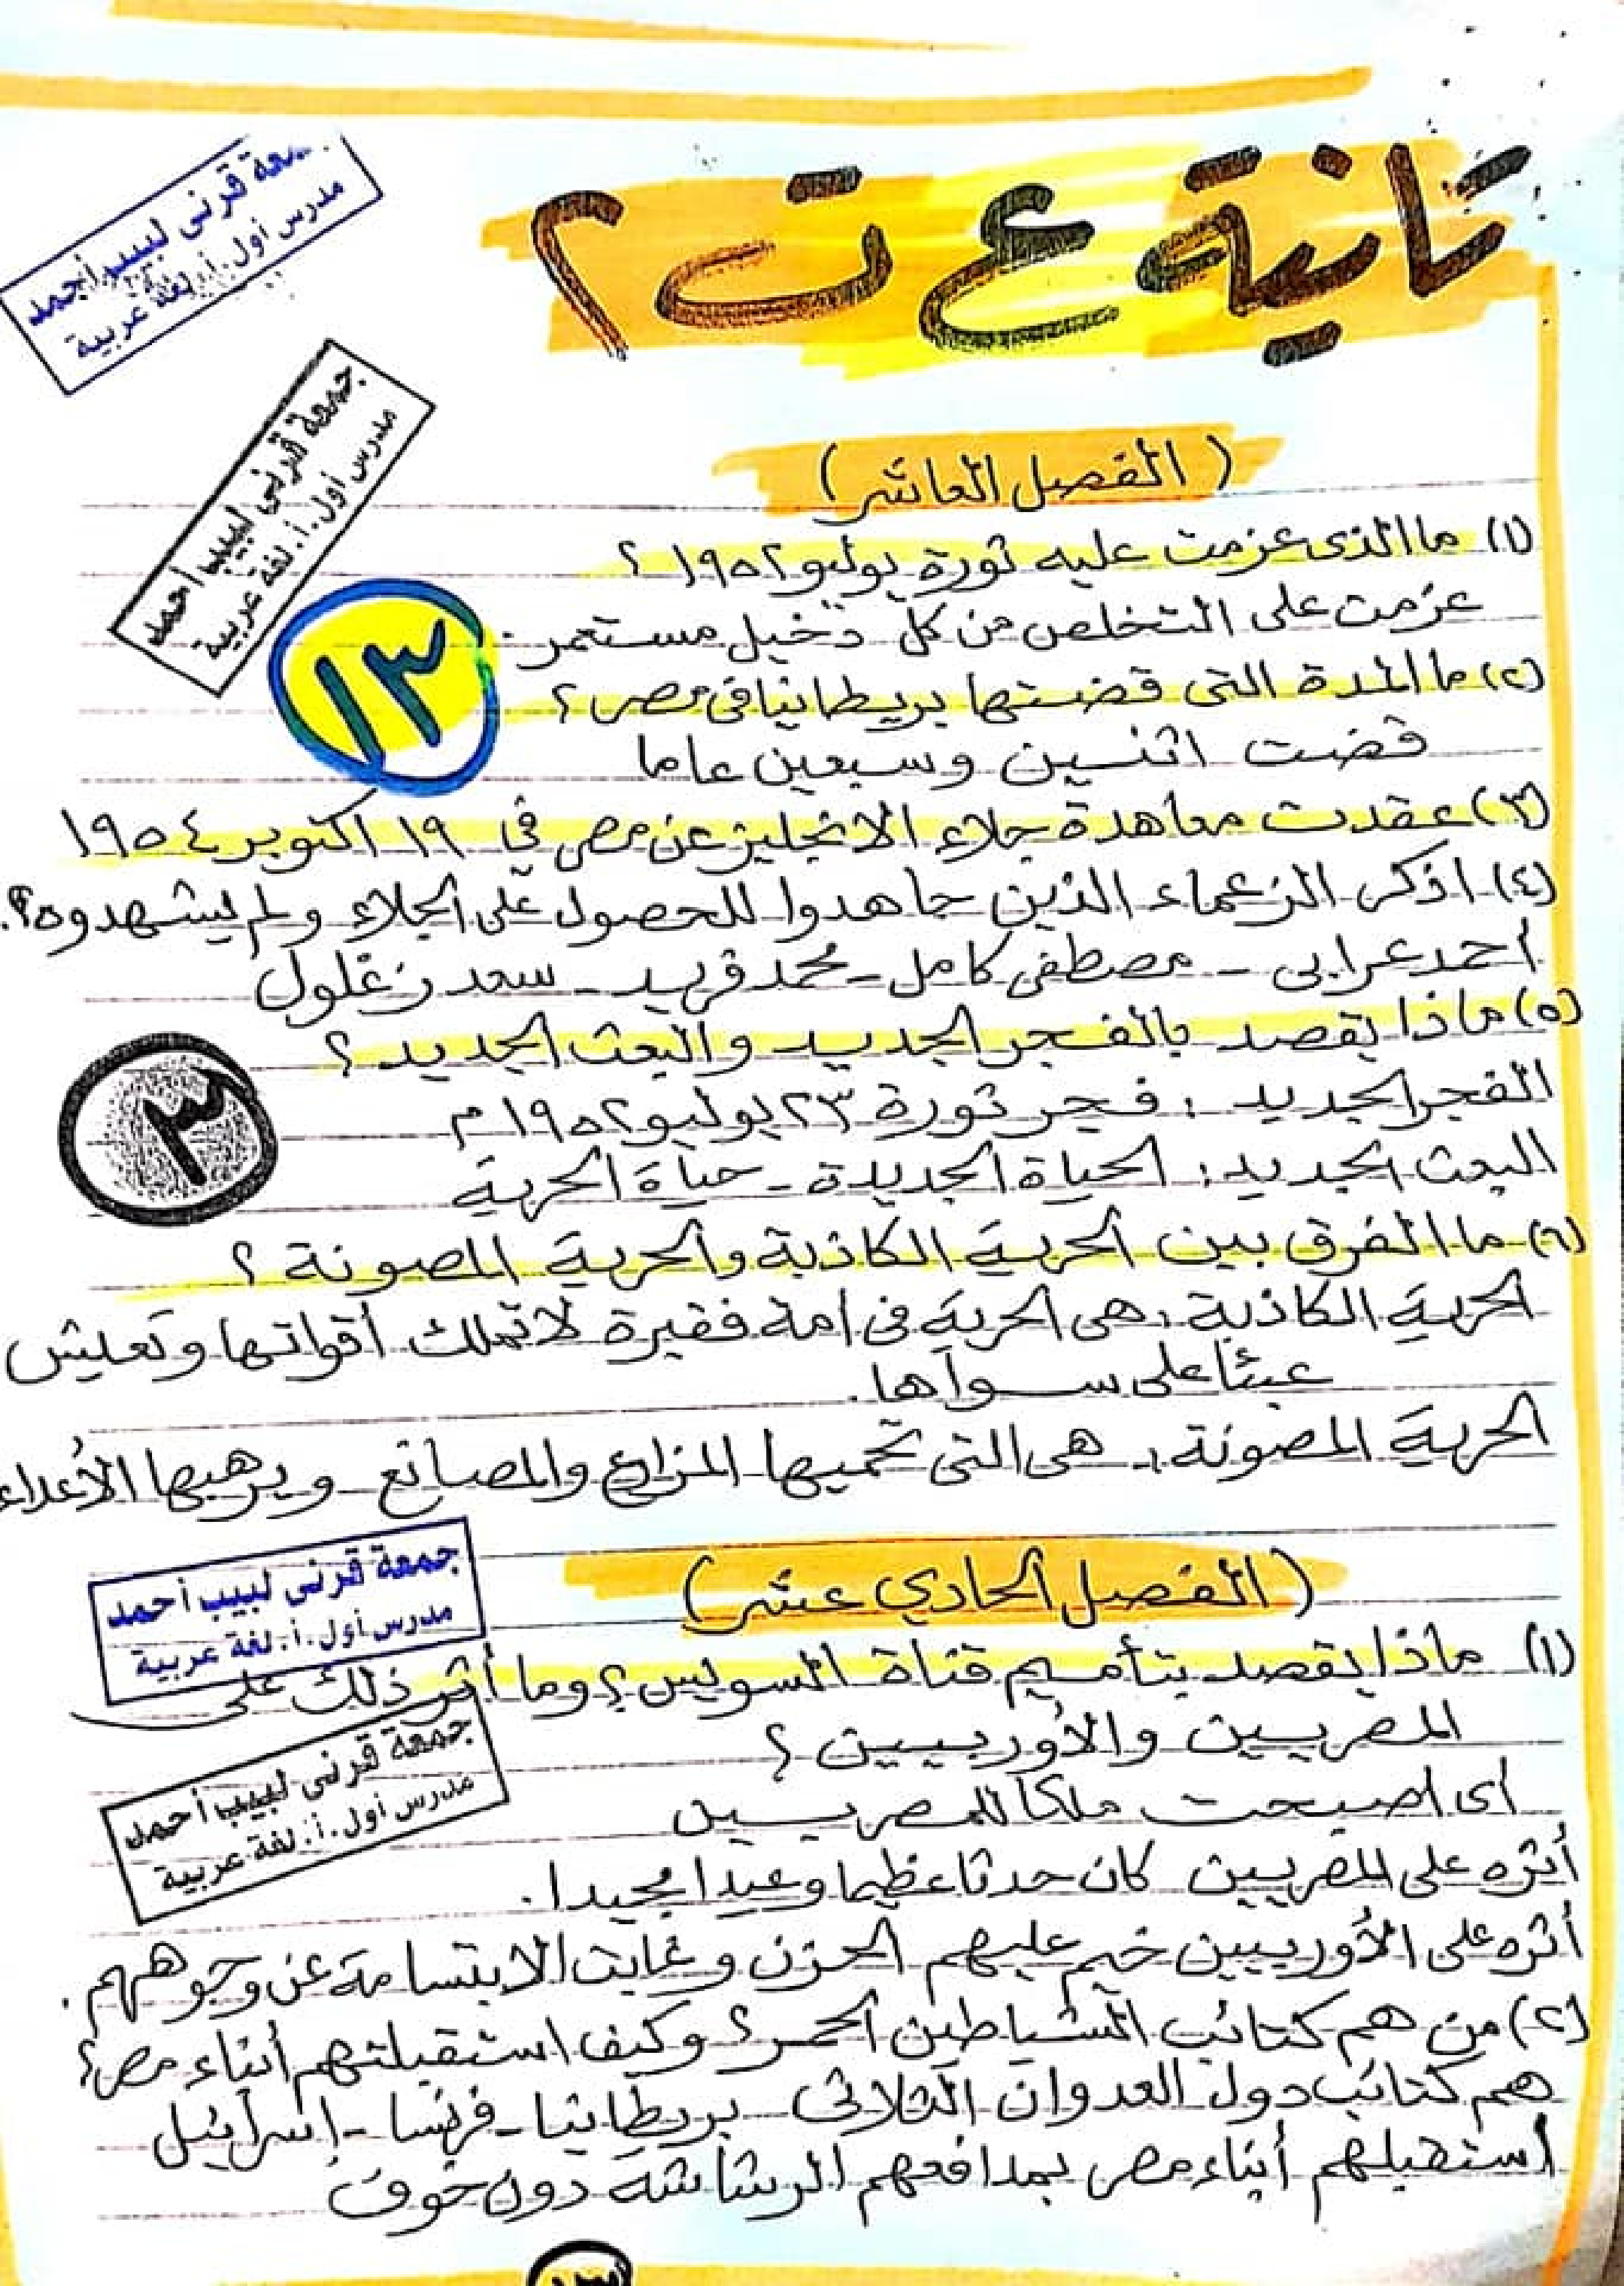 ثانية ع ت ٢
جمعة قرنى لبيب أحمد
مدرس أول.أ.لغة عربية
جمعة قرنى لبيب أحمد
مدرس أول.أ.لغة عربية
(الفصل العاشر)
(١) ما الذى عزمت عليه ثورة يوليو ١٩٥٢؟
عزمت على التخلص من كل دخيل مستعمر.
١٣
(٢) ما المدة التى قضتها بريطانيا فى مصر؟
قضت اثنين وسبعين عاما
(٣) عقدت معاهدة جلاء الانجليز عن مصر في ١٩ اكتوبر ١٩٥٤
(٤) اذكر الزعماء الذين جاهدوا للحصول على الجلاء ولم يشهدوه؟.
أحمد عرابى - مصطفى كامل - محمد فريد - سعد زغلول
(٥) ماذا يقصد بالفجر الجديد والبعث الجديد؟
٣
الفجر الجديد : فجر ثورة ٢٣ يوليو ١٩٥٢م
البعث الجديد : الحياة الجديدة - حياة الحرية
(٦) ما الفرق بين الحرية الكاذبة والحرية المصونة؟
الحرية الكاذبة : هى الحرية فى امة فقيرة لا تملك أقواتها وتعيش
عبئا على سواها.
الحرية المصونة : هى التى تحميها المزارع والمصانع ويرهبها الأعداء
(الفصل الحادي عشر)
جمعة قرنى لبيب أحمد
مدرس أول.أ.لغة عربية
(١) ماذا يقصد بتأميم قناة السويس؟ وما أثر ذلك على
المصريين والأوربيين؟
جمعة قرنى لبيب أحمد
مدرس أول.أ.لغة عربية
أى اصبحت ملكا للمصريين
أثره على المصريين كان حدثا عظيما وعيدا مجيدا.
أثره على الأوربيين خيم عليهم الحزن وغابت الابتسامة عن وجوههم.
(٢) من هم كتائب الشياطين الحمر؟ وكيف استقبلتهم أبناء مصر؟
هم كتائب دول العدوان الثلاثى بريطانيا - فرنسا - إسرائيل
استقبلهم أبناء مصر بمدافعهم الرشاشة دون خوف
١٣